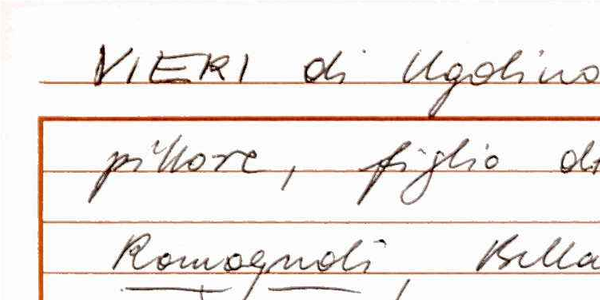 VIERI di Ugolino
pittore, figlio di
Romagnoli, Bella